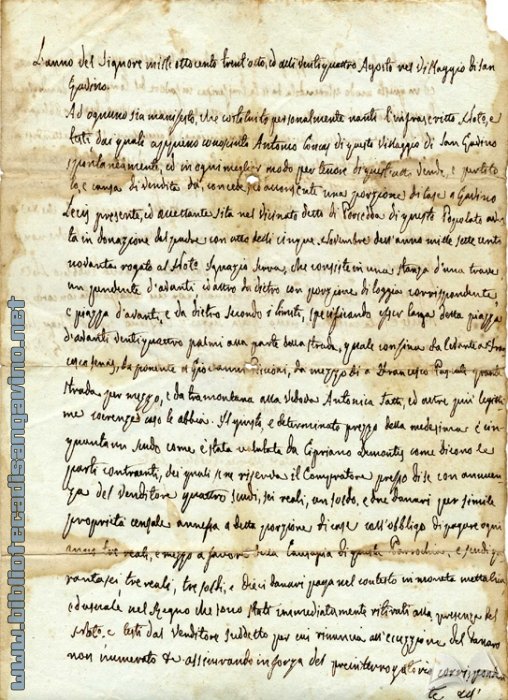 L'anno del Signore mille ottocento trent'otto, ed alli ventiquattro Agosto nel Villaggio di San
Gavino.
Ad ognuno sia manifesto, che costituito personalmente nanti l'infrascritto Noto, e
testi dai quali appieno conosciuto Antonio di questo Villaggio di San Gavino
spontaneamente, ed in ogni miglior modo per tenore di quest'atto vende, e per titolo
e causa di vendita da, concede, ed acconsente una porzione di case a Gavino
Lecis presente, ed accettante sita nel vicinato detto di di questo Popolato
in donazione del padre con atto delli cinque Novembre dell'anno mille sette cento
novanta rogato al Noto Ignazio Serra, che consiste in una stanza d'una trave
un pendente d'avanti ed altro da dietro con porzione di loggia corrispondente,
e piazza d'avanti, e da dietro secondo i limiti, specificando esser larga detta piazza
d'avanti ventiquattro palmi alla parte della strada, quale confina da levante a
da ponente a Giovanni da mezzodì a Francesco
strada per mezzo, e da tramontana alla Vedova Antonica ed altre più
me coerenze caso le abbia. Il giusto, e determinato prezzo della medesima è
un scudo come è stata valutata da Cipriano come dicono le
parti contraenti, dei quali se ne riserva il Compratore presso di se con annuen
za del Venditore quattro scudi, sei reali, un soldo, e due danari per simile
proprietà censale annessa a detta porzione di case coll'obbligo di pagare ogni
anno tre reali, e mezzo a favore della Causapia di questa Parrochia, e scudi
ranta sei, tre reali, tre soldi, e dieci danari paga nel contesto in moneta metallica
e duscale nel Regno che sono stati immediatamente ritirati alla presenza del
Noto, e testi dal Venditore suddetto per cui rinuncia all'eccezzione del danaro
non numerato &a assicurando in forza del preinterrogatorio
www.bibliotecadisangavino.net